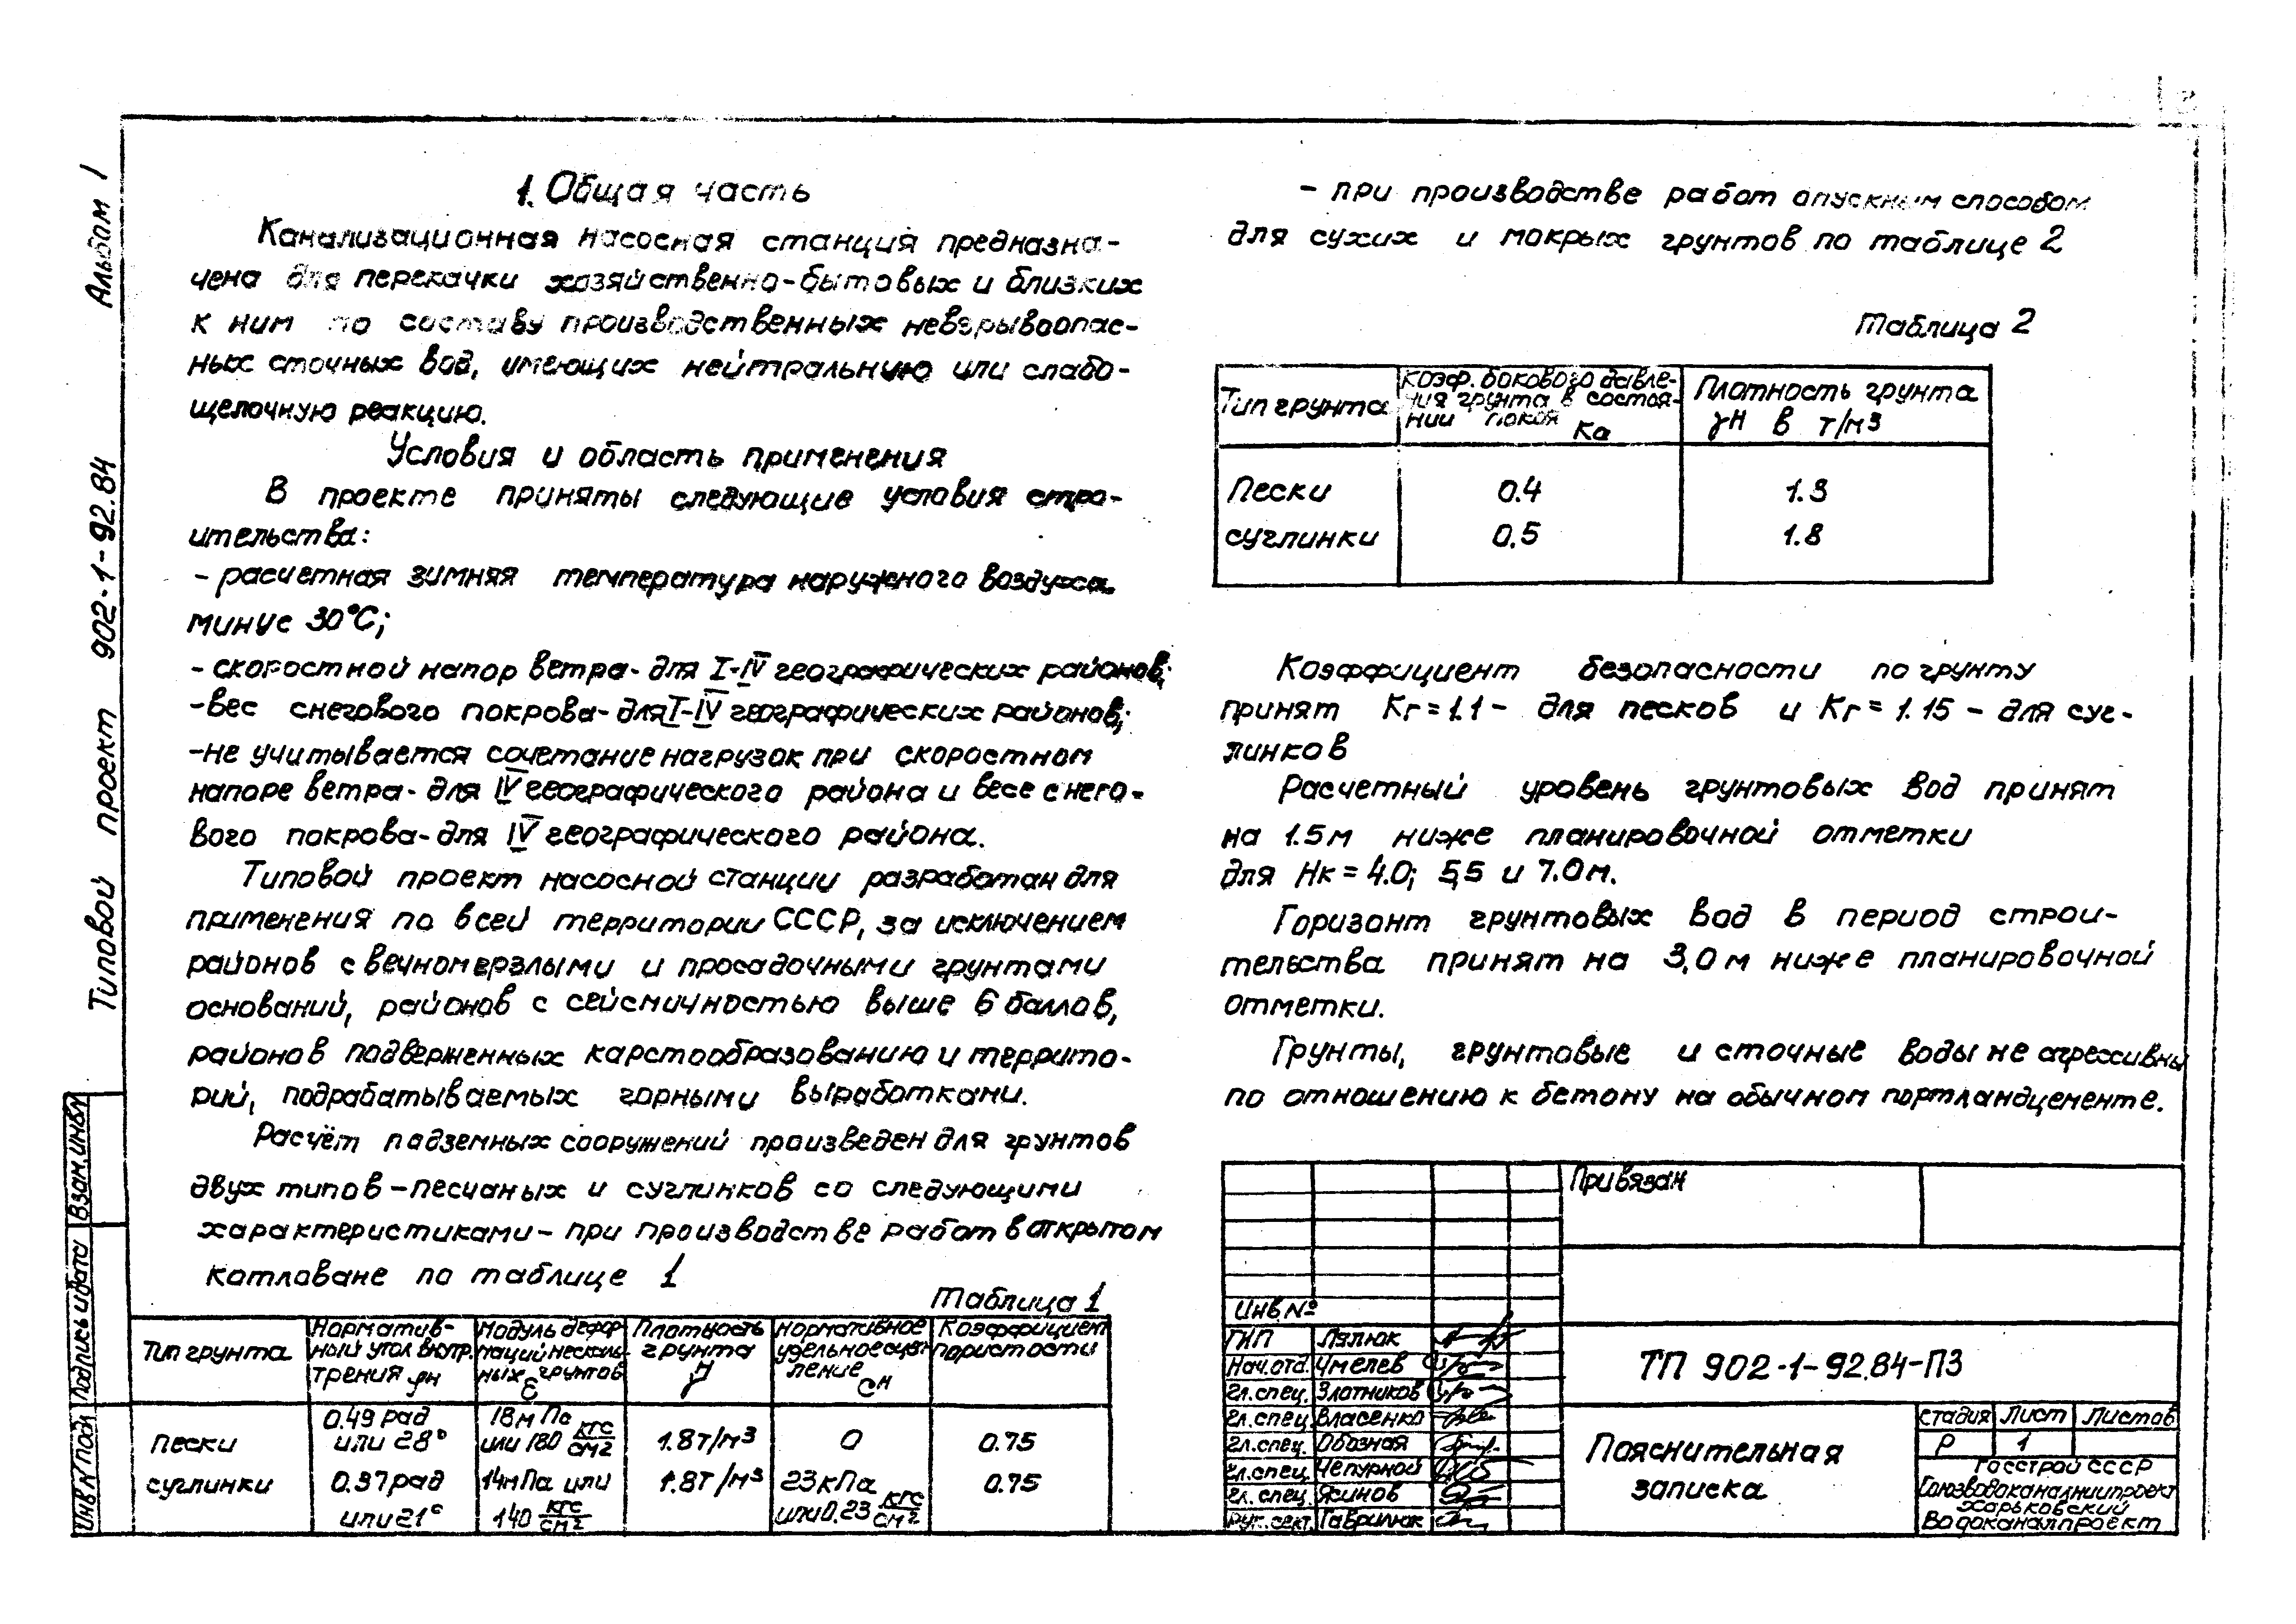 Альбом 1
Типовой проект 902-1-92.84
1. Общая часть
Канализационная насосная станция предназна-
чена для перекачки хозяйственно-бытовых и близких
к ним по составу производственных невзрывоопас-
ных сточных вод, имеющих нейтральную или слабо-
щелочную реакцию.
Условия и область применения
В проекте приняты следующие условия стро-
ительства:
- расчетная зимняя температура наружного воздуха
минус 30°С;
- скоростной напор ветра - для I-IV географических районов;
- вес снегового покрова - для I-IV географических районов;
- не учитывается сочетание нагрузок при скоростном
напоре ветра - для IV географического района и весе снего-
вого покрова - для IV географического района.
Типовой проект насосной станции разработан для
применения по всей территории СССР, за исключением
районов с вечномерзлыми и просадочными грунтами
оснований, районов с сейсмичностью выше 6 баллов,
районов подверженных карстообразованию и террито-
рий, подрабатываемых горными выработками.
Расчёт подземных сооружений произведен для грунтов
двух типов - песчаных и суглинков со следующими
характеристиками - при производстве работ в открытом
котловане по таблице 1
Таблица 1
Тип грунта | Норматив-ный угол внутр. трения φн | Модуль дефор-маций несколь-ных грунтов Е | Плотность грунта γн | Нормативное удельное сцеп-ление Сн | Коэффициент пористости
пески | 0.49 рад или 28° | 18мПа или 180 кгс/см2 | 1.8т/м3 | 0 | 0.75
суглинки | 0.37рад или 21° | 14мПа или 140 кгс/см2 | 1.8т/м3 | 23кПа или 0.23 кгс/см2 | 0.75
- при производстве работ опускным способом
для сухих и мокрых грунтов по таблице 2
Таблица 2
Тип грунта | Коэф. бокового давле-ния грунта в состоя-нии покоя Ка | Плотность грунта γн в т/м3
Пески | 0.4 | 1.3
суглинки | 0.5 | 1.8
Коэффициент безопасности по грунту
принят Кг = 1.1 - для песков и Кг = 1.15 - для суг-
линков
Расчетный уровень грунтовых вод принят
на 1.5м ниже планировочной отметки
для Нк = 4.0; 5,5 и 7.0м.
Горизонт грунтовых вод в период строи-
тельства принят на 3,0м ниже планировочной
отметки.
Грунты, грунтовые и сточные воды не агрессивны
по отношению к бетону на обычном портландцементе.
Привязан
Инв. №
ГИП Лялюк
Нач.отд. Чмелев
Гл.спец. Златников
Гл.спец. Власенко
Гл.спец. Обозная
Гл.спец. Чепурной
Гл.спец. Ясинов
Рук.сект. Гаврилюк
ТП 902-1-92.84-ПЗ
Пояснительная
записка
Стадия Лист Листов
Р 1
Госстрой СССР
Союзводоканалниипроект
Харьковский
Водоканалпроект
Взам.инв.№
Подпись и дата
Инв.№ подл